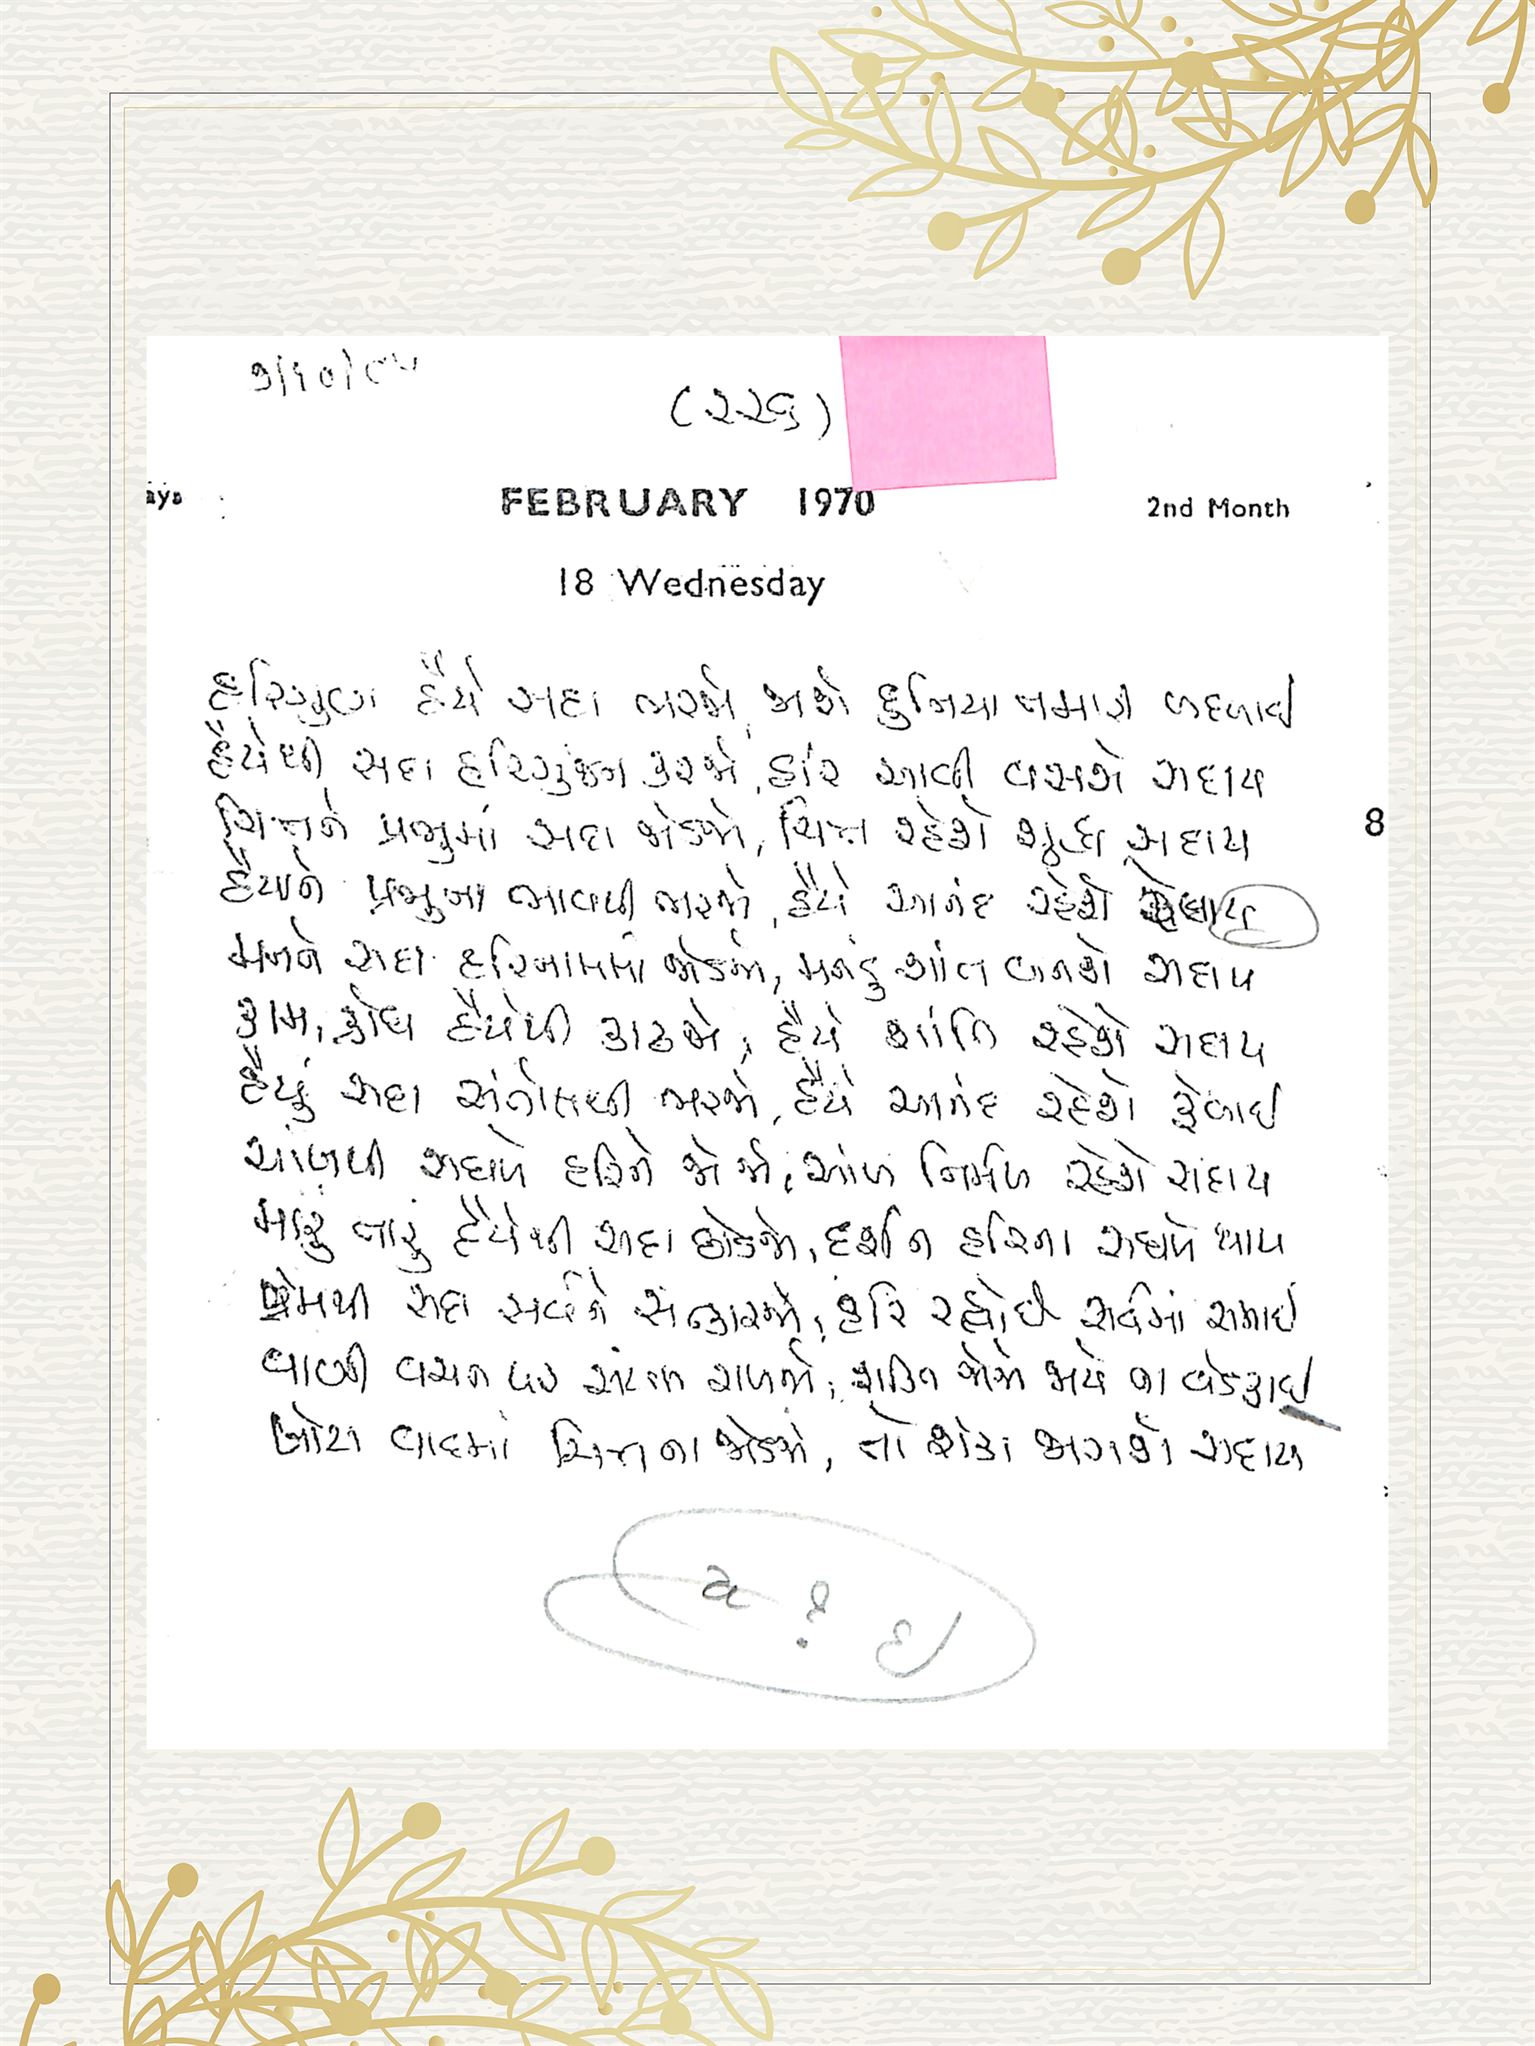 ૭/૧૦/૮૫
(૨૨૬)
ays
FEBRUARY 1970
2nd Month
18 Wednesday
હરિગુણ હૈયે સદા ભરજો, જાશે દુનિયા તમારી બદલાઈ
હૈયેથી સદા હરિગુંજન કરજો, હરિ આવી વસશે સદાય
ચિત્તને પ્રભુમાં સદા જોડજો, ચિત્ત રહેશે શુદ્ધ સદાય
8
હૈયાને પ્રભુના ભાવથી ભરજો, હૈયે આનંદ રહેશે
મનને સદા હરિનામમાં જોડજો, મનડું શાંત બનશે સદાય
કામ, ક્રોધ હૈયેથી કાઢજો, હૈયે શાંતિ રહેશે સદાય
હૈયું સદા સંતોષથી ભરજો, હૈયે આનંદ રહેશે ફેલાઈ
આંખથી સઘળે હરિને જોજો, આંખ નિર્મળ રહેશે સદાય
મારું તારું હૈયેથી સદા છોડજો, દર્શન હરિના સઘળે થાય
પ્રેમથી સદા સર્વને સત્કારજો, હરિ રહ્યો છે સર્વમાં સમાઈ
વાણી વચન પર સંયમ રાખજો, શક્તિ જોજો જાયે ના વેડફાઈ
ખોટા વાદમાં ચિત્ત ના જોડજો, તો શંકા જાગશે સદાય
ય ? ઈ